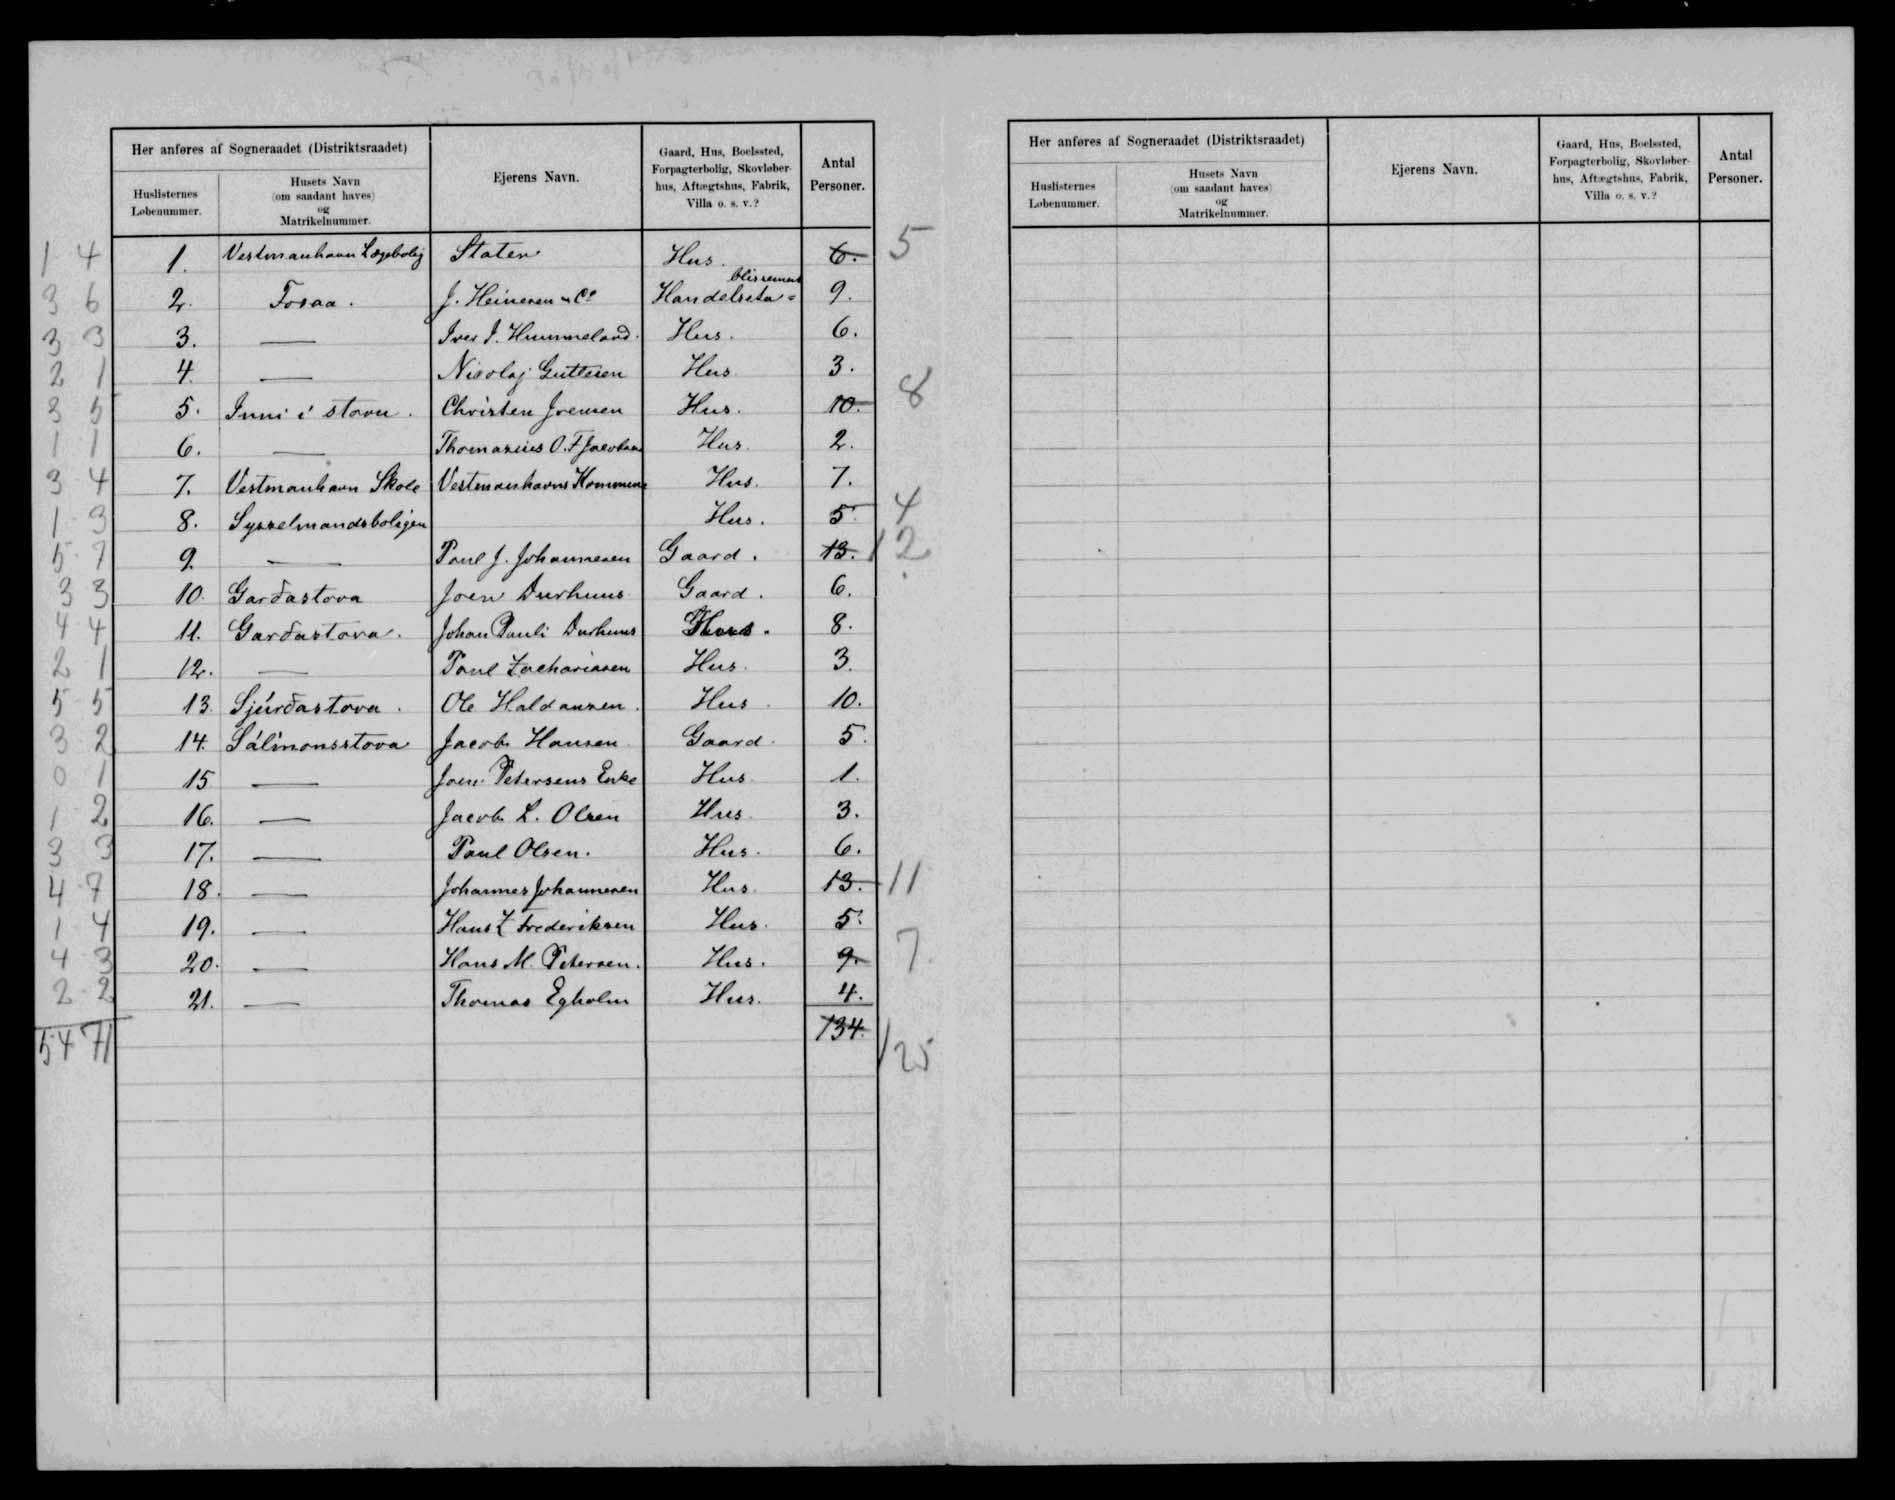 Her anføres af Sogneraadet (Distriktsraadet)
Huslisternes Løbenummer.
Husets Navn (om saadant haves) og Matrikelnummer.
Ejerens Navn.
Gaard, Hus, Boelssted, Forpagterbolig, Skovløberhus, Aftægtshus, Fabrik, Villa o. s. v.?
Antal Personer.
1 4 1. Vestmanhavn Lægebolig Staten Hus. 6. 5
3 6 2. Fossaa. J. Heinesen & Co Handelseta=blissement 9.
3 3 3. — Iver J. Hummeland. Hus. 6.
2 1 4. — Nicolaj Guttesen Hus 3.
3 5 5. Inni í stovu. Christen Joensen Hus. 10. 8
1 1 6. — Thomasius O. F Jacobsen Hus. 2.
3 4 7. Vestmanhavn Skole Vestmanhavns Kommune Hus. 7.
1 3 8. Sysselmandsboligen Hus. 5. 4
5 7 9. — Poul J. Johannesen Gaard. 13. 12
3 3 10. Garðastova Joen Durhuus Gaard. 6.
4 4 11. Garðastova. Johan Pauli Durhuus Hus. 8.
2 1 12. — Poul Zachariasen Hus. 3.
5 5 13. Sjúrðastova. Ole Haldansen. Hus. 10.
3 2 14. Sálimonsstova Jacob Hansen Gaard. 5.
0 1 15. — Joen Petersens Enke Hus. 1.
1 2 16. — Jacob L. Olsen Hus. 3.
3 3 17. — Poul Olsen. Hus. 6.
4 7 18. — Johannes Johannesen Hus. 13. 11
1 4 19. — Hans Z Frederiksen Hus. 5.
4 3 20. — Hans M. Petersen. Hus. 9. 7
2 2 21. — Thomas Egholm Hus. 4.
54 71 134. 125
Her anføres af Sogneraadet (Distriktsraadet)
Huslisternes Løbenummer.
Husets Navn (om saadant haves) og Matrikelnummer.
Ejerens Navn.
Gaard, Hus, Boelssted, Forpagterbolig, Skovløberhus, Aftægtshus, Fabrik, Villa o. s. v.?
Antal Personer.